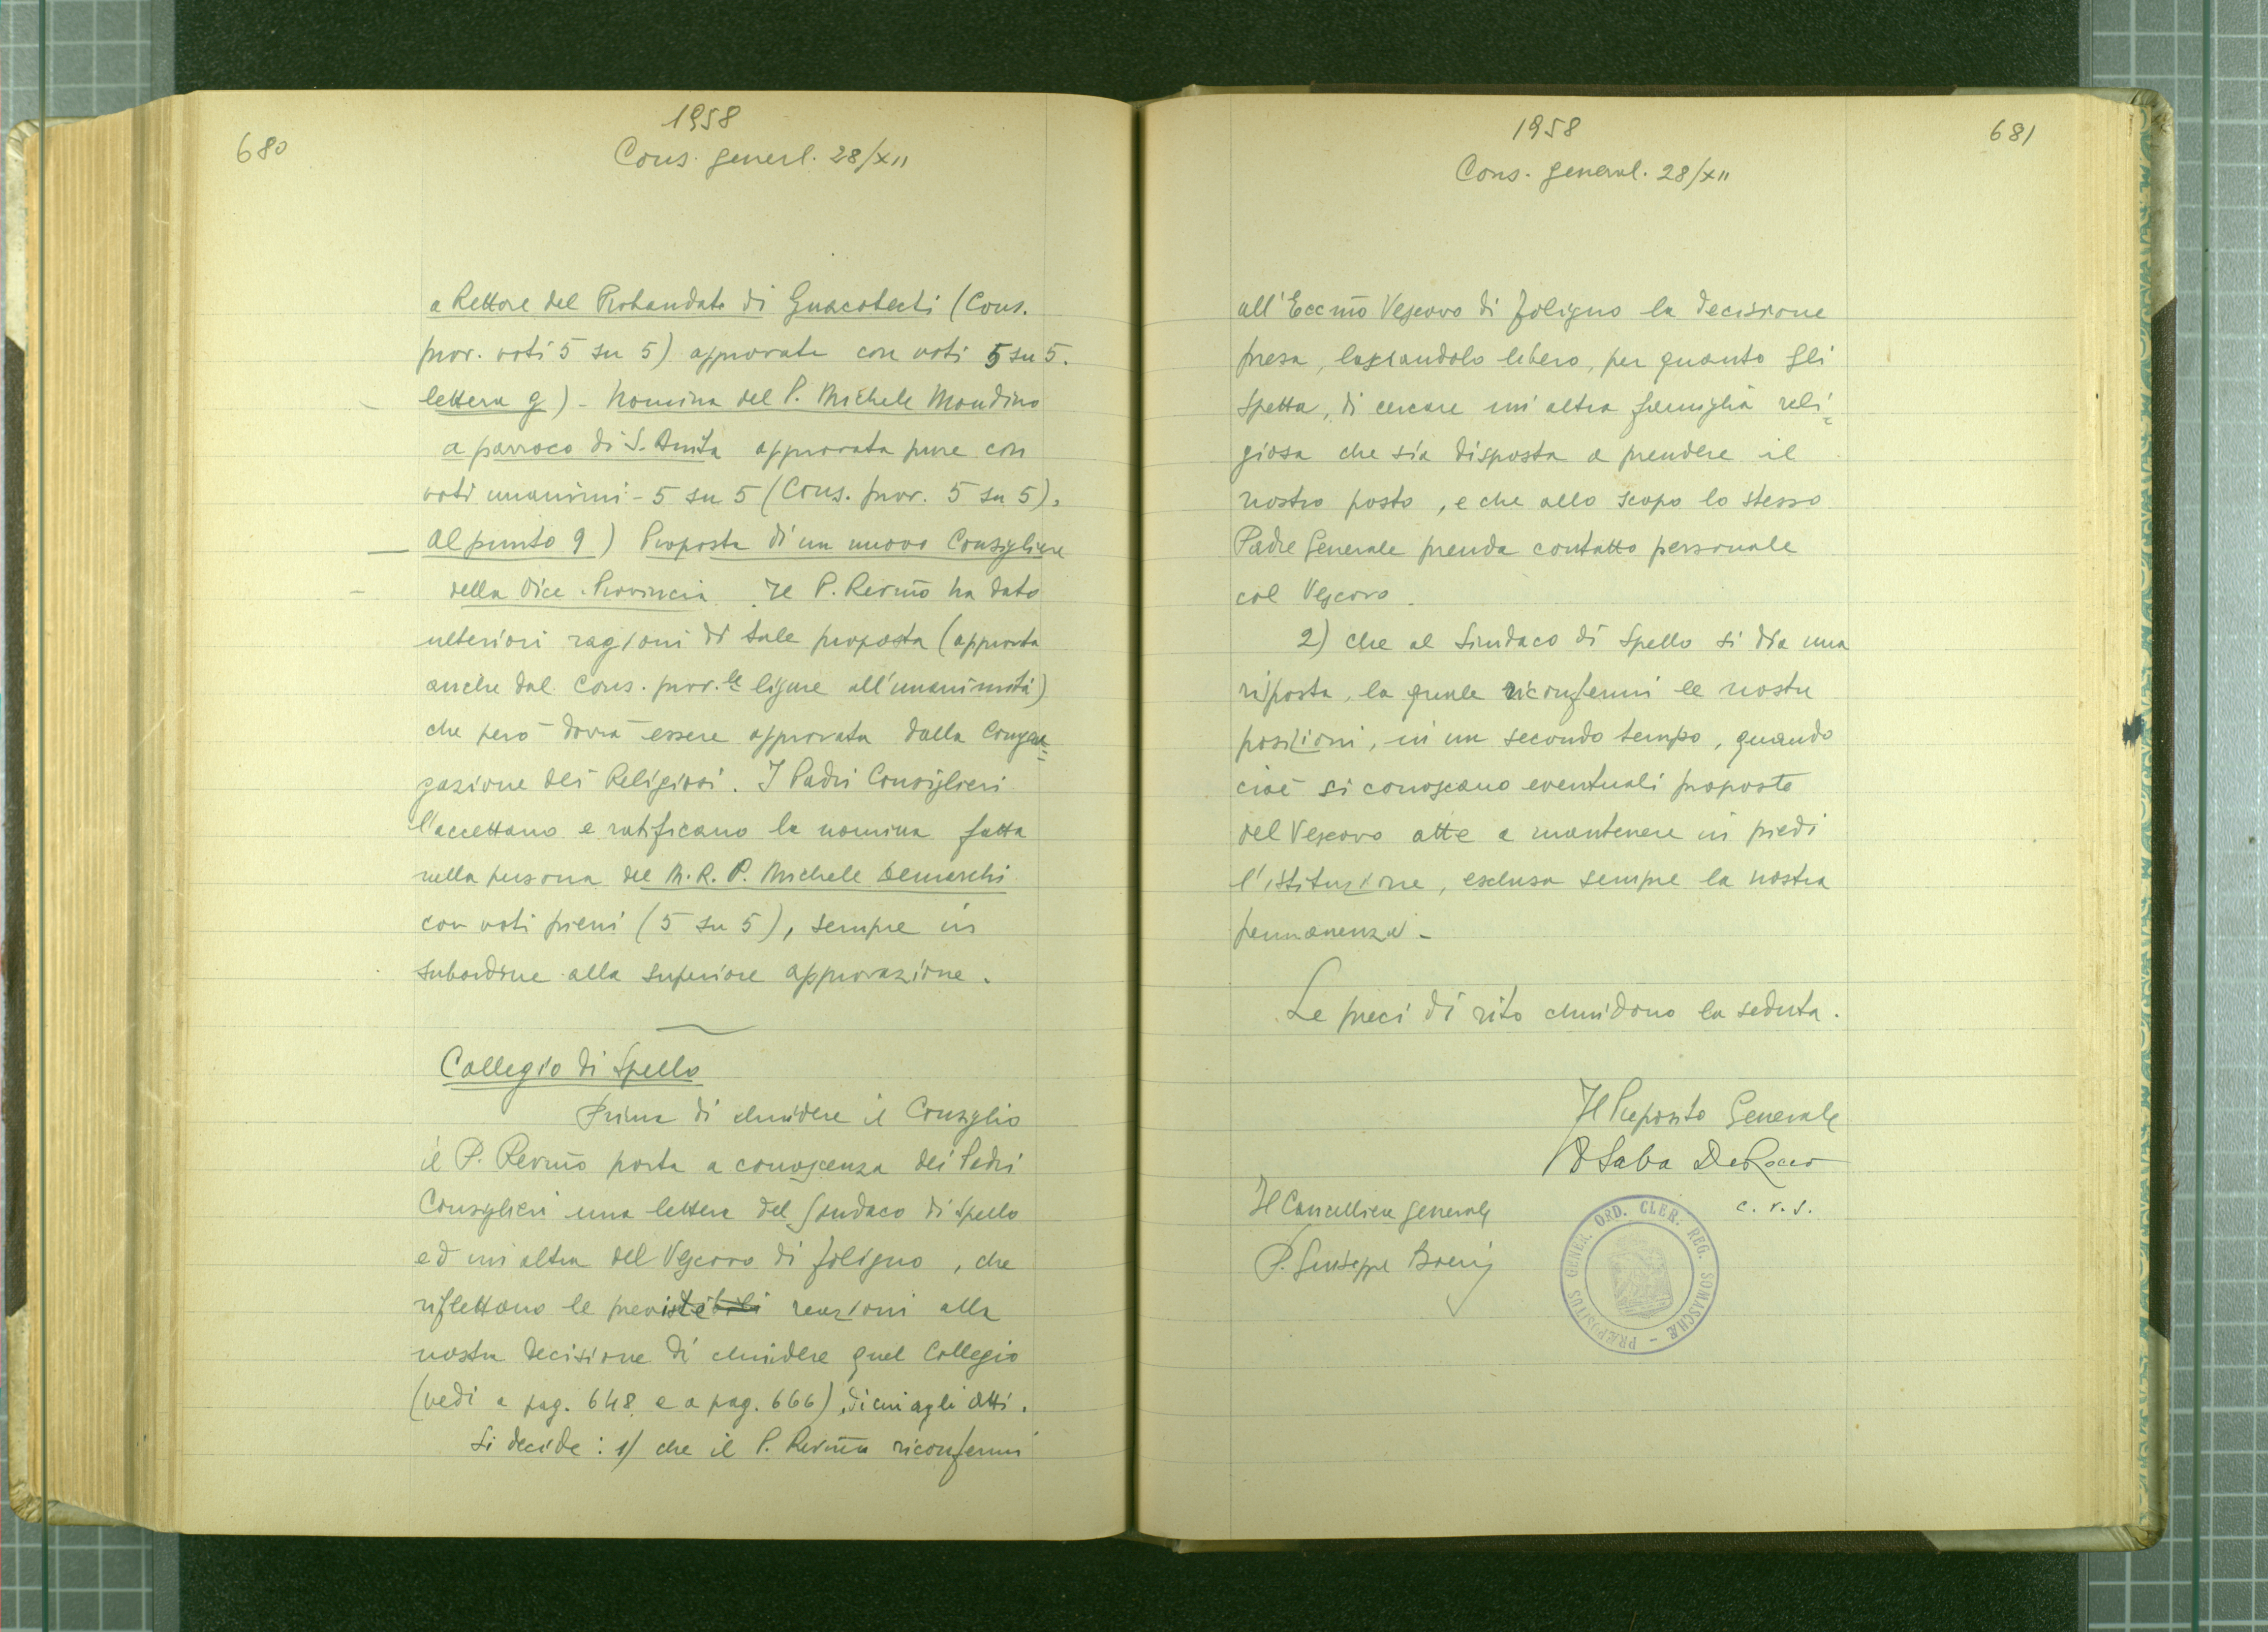 680
1958
Cons. generl. 28/XII
a Rettore del Probandato di Guacotecti (Cons.
prov. voti 5 su 5) approvata con voti 5 su 5.
lettera g) - Nomina del P. Michele Mondino
a parroco di S. Anita approvata pure con
voti unanimi - 5 su 5 (Cons. prov. 5 su 5).
Al punto 9) Proposta di un nuovo Consigliere
della Vice-Provincia. Il P. Rev.mo ha dato
ulteriori ragioni di tale proposta (approvata
anche dal Cons. prov.le ligure all'unanimità)
che però dovrà essere approvata dalla Congre=
gazione dei Religiosi. I Padri Consiglieri
l'accettano e ratificano la nomina fatta
nella persona del M. R. P. Michele Demarchi
con voti pieni (5 su 5), sempre in
subordine alla superiore approvazione.
Collegio di Spello
Prima di chiudere il Consiglio
il P. Rev.mo porta a conoscenza dei Padri
Consiglieri una lettera del Sindaco di Spello
ed un'altra del Vescovo di Foligno, che
riflettono le previste reazioni alla
nostra decisione di chiudere quel Collegio
(vedi a pag. 648 e a pag. 666), di cui agli atti.
Si decide: 1) che il P. Rev.mo riconfermi
1958
681
Cons. general. 28/XII
all'Ecc.mo Vescovo di Foligno la decisione
presa, lasciandolo libero, per quanto gli
spetta, di cercare un'altra famiglia reli=
giosa che sia disposta a prendere il
nostro posto, e che allo scopo lo stesso
Padre Generale prenda contatto personale
col Vescovo.
2) che al Sindaco di Spello si dia una
risposta, la quale riconfermi le nostre
posizioni, in un secondo tempo, quando
cioè si conoscano eventuali proposte
del Vescovo atte a mantenere in piedi
l'istituzione, esclusa sempre la nostra
permanenza -
Le preci di rito chiudono la seduta.
Il Preposito Generale
P. Saba De Rocco
c. r. s.
Il Cancelliere generale
P. Giuseppe
PRÆPOSITUS GENER. ORD. CLER. REG. SOMASCHÆ -